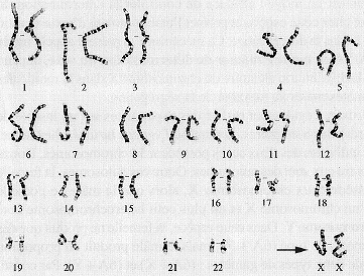 1 2 3 4 5
6 7 8 9 10 11 12
13 14 15 16 17 18
19 20 21 22 X X